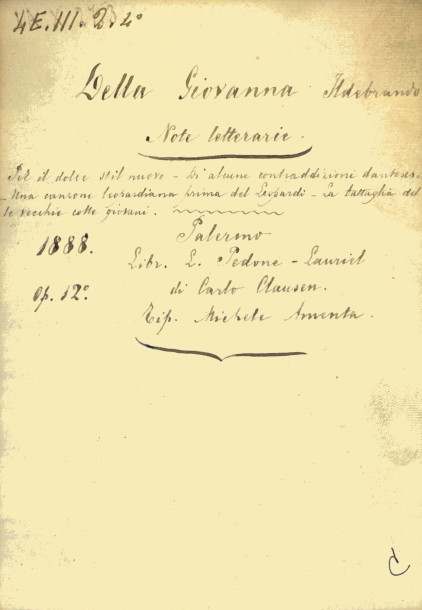 4E.III.2.4°
Della Giovanna Ildebrando
Note letterarie.
Per il dolce stil nuovo - Di alcune contraddizioni dantesche.
- Una canzone leopardiana prima del Leopardi - La battaglia del
le vecchie colle giovani.
Palermo
1888.
Libr. L. Pedone-Lauriel
di Carlo Clausen.
Op. 12°.
Tip. Michele Amenta.
C